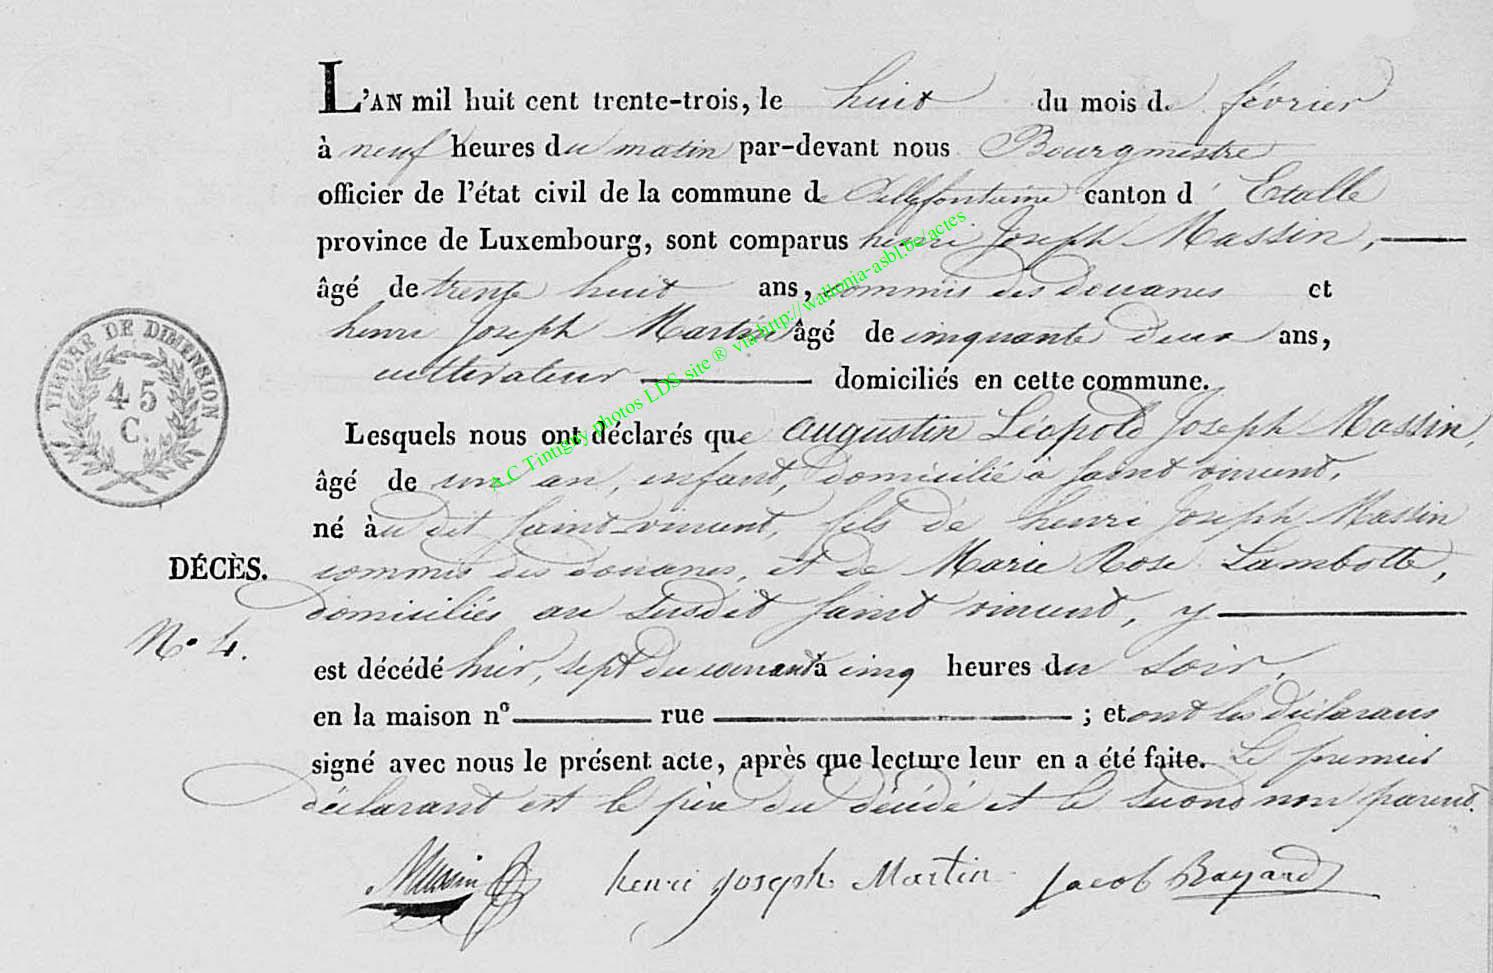 L'AN mil huit cent trente-trois, le huit du mois de février
à neuf heures du matin par-devant nous Bourgmestre
officier de l'état civil de la commune de Bellefontaine canton d' Etalle
province de Luxembourg, sont comparus henri Joseph Massin,
âgé de trente huit ans, commis des douanes et
henri Joseph Martin âgé de cinquante deux ans,
cultivateur domiciliés en cette commune.
Lesquels nous ont déclarés que augustin Léopold Joseph Massin,
âgé de un an, enfant, domicilié à saint vincent,
né àu dit saint-vincent, fils de henri Joseph Massin
DÉCÈS. commis des douanes, et de Marie Rose Lambotte,
domiciliés au susdit saint vincent, y
N.° 4.
est décédé hier, sept du courant à cinq heures du soir,
en la maison n° rue ; et ont les déclarans
signé avec nous le présent acte, après que lecture leur en a été faite. Le premier
déclarant est le père du décédé et le second non parent.
Massin henri joseph Martin jacob Rayard
TIMBRE DE DIMENSION
45
C.
A.C Tintigny photos LDS site ® via http://wallonia-asbl.be/actes